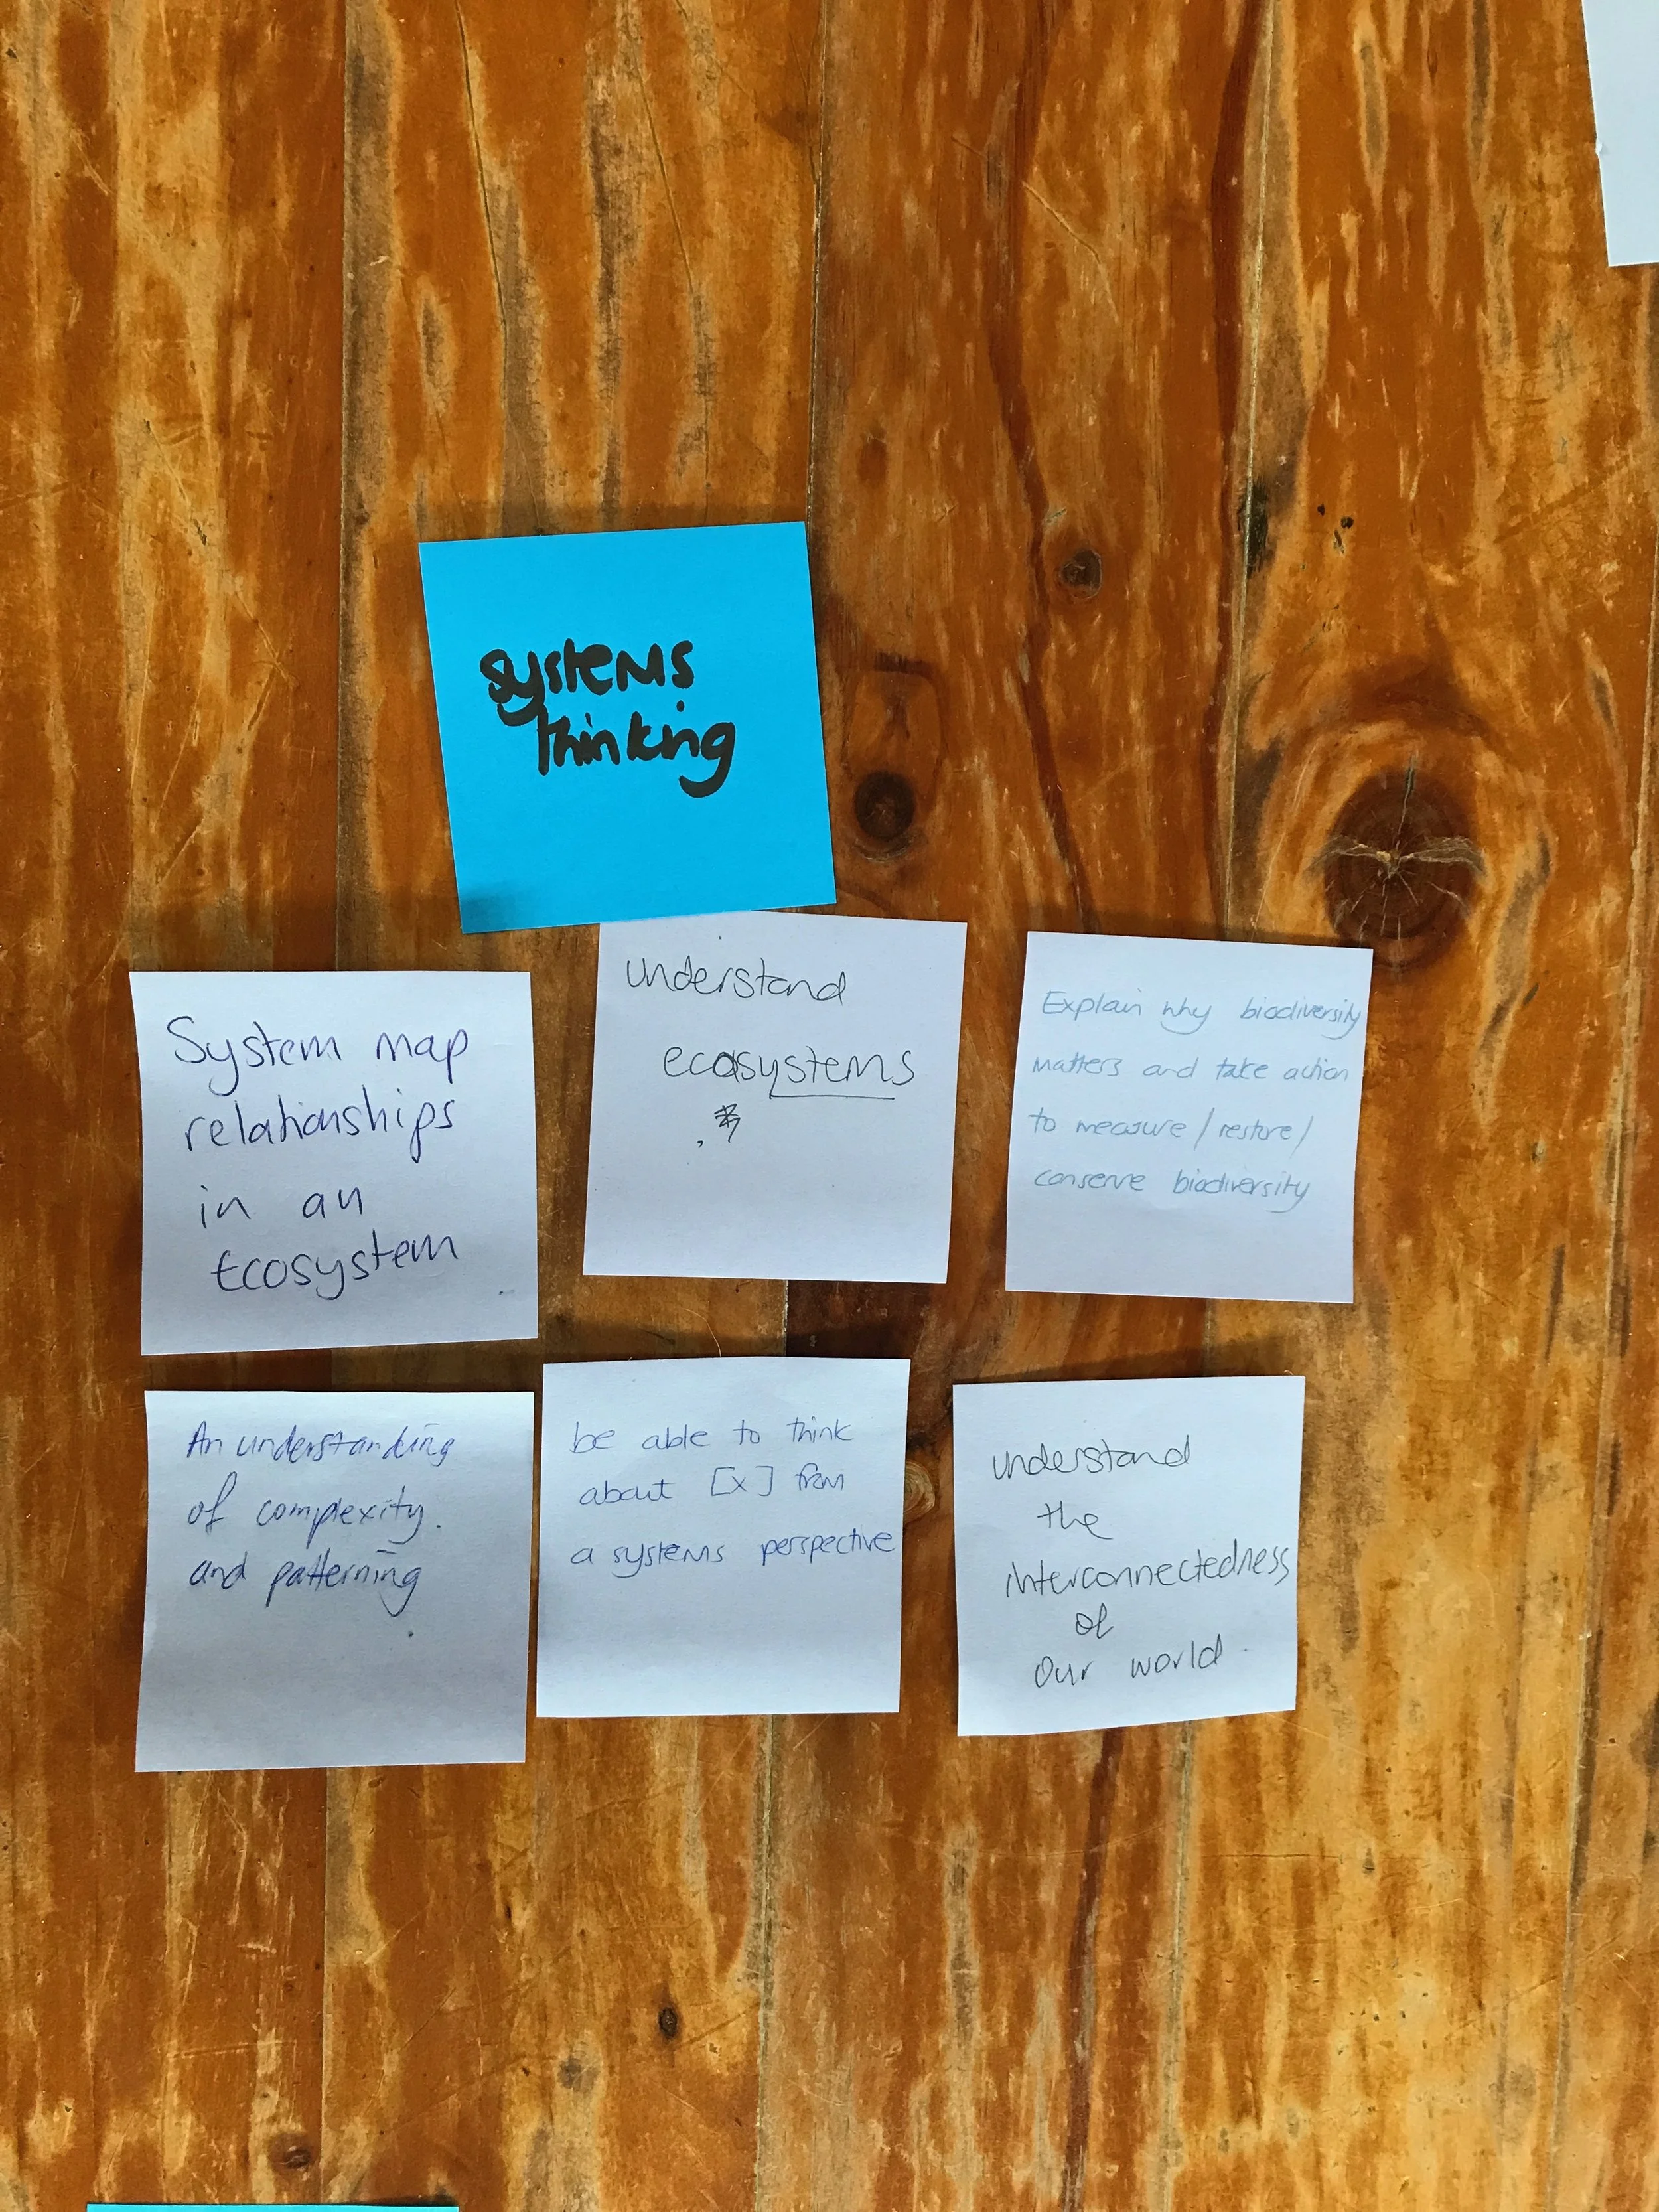 systems
thinking
System map
relationships
in an
Ecosystem
understand
ecosystems
Explain why biodiversity
matters and take action
to measure/restore/
conserve biodiversity
An understanding
of complexity.
and patterning
be able to think
about [x] from
a systems perspective
understand
the
interconnectedness
of
our world.